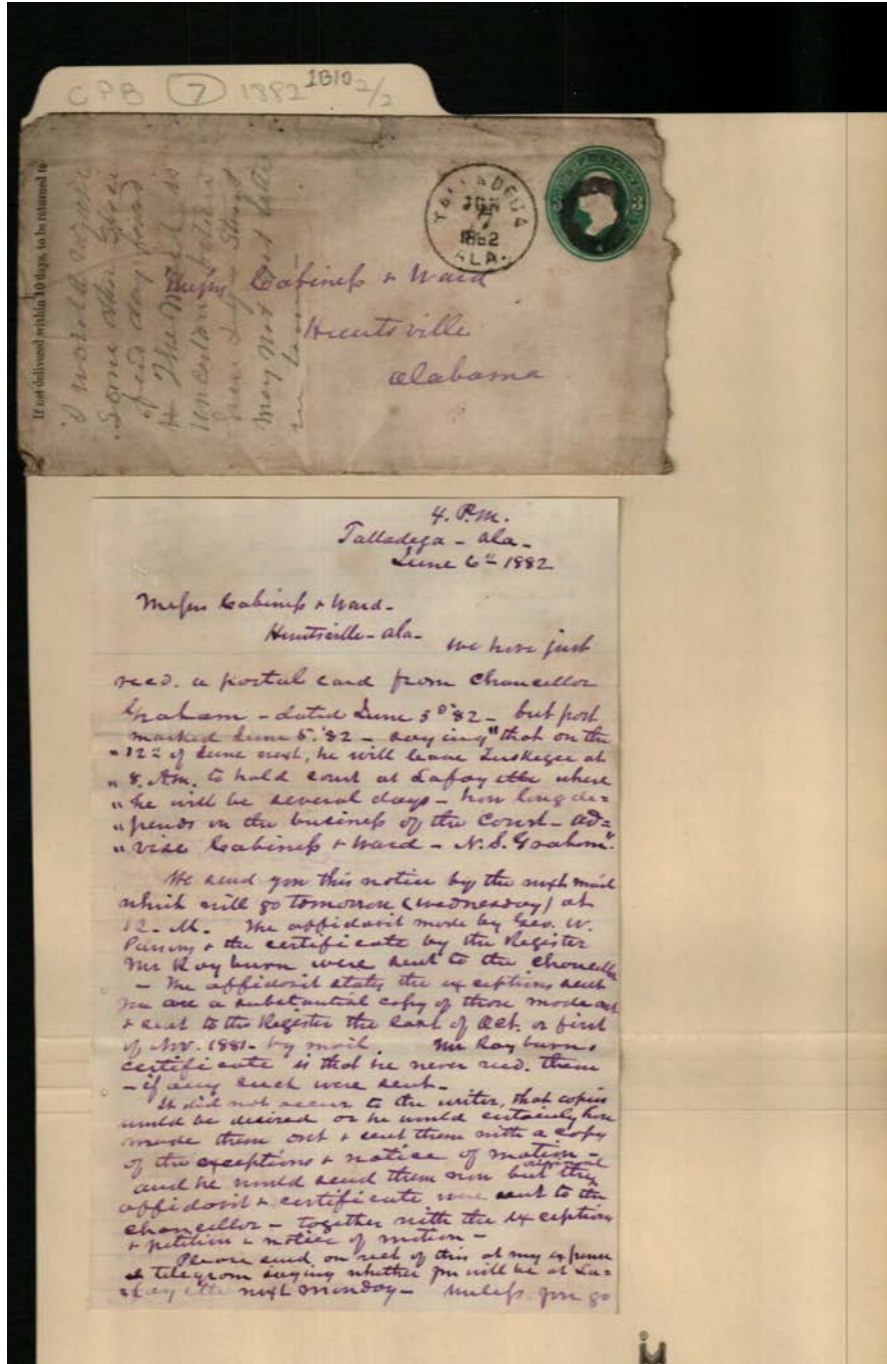 CPB 7 1882 1B10 2/2
If not delivered within 10 days, to be returned to
I would
some other
day
The Mail is
uncertain
may not
TALLADEGA
JUN
7
1882
ALA.
Messrs Cabiness & Ward
Huntsville
Alabama
4. P.M.
Talladega - Ala -
June 6th 1882
Messrs Cabiness & Ward -
Huntsville - Ala - We have just
recd. a postal card from Chancellor
Graham - dated June 3d '82 - but post
marked June 5. '82 - saying "that on the
" 12th of June next, he will leave Tuskegee at
" 8. AM. to hold court at Lafayette where
" he will be several days - how long de=
" pends on the business of the Court - ad=
" vise Cabiness & Ward - N. S. Graham".
We send you this notice by the next mail
which will go tomorrow (Wednesday) at
12 - M. The affidavit made by Geo. W.
Parsons & the certificate by the Register
Mr Rayburn were sent to the Chancellor
- The affidavit states the exceptions sent
you are a substantial copy of those made out
& sent to the Register the last of Oct. or first
of Nov. 1881 - by mail. Mr Rayburns
certificate is that he never recd. them
- if any such were sent -
It did not occur to the writer, that copies
would be desired or he would certainly have
made them out & sent them with a copy
of the exceptions & notice of motion -
and he would send them now but the original
affidavit & certificate were sent to the
chancellor - together with the exceptions
& petition & notice of motion -
Please send on rect of this at my expense
a telegram saying whether you will be at La=
fayette next Monday - Unless you go